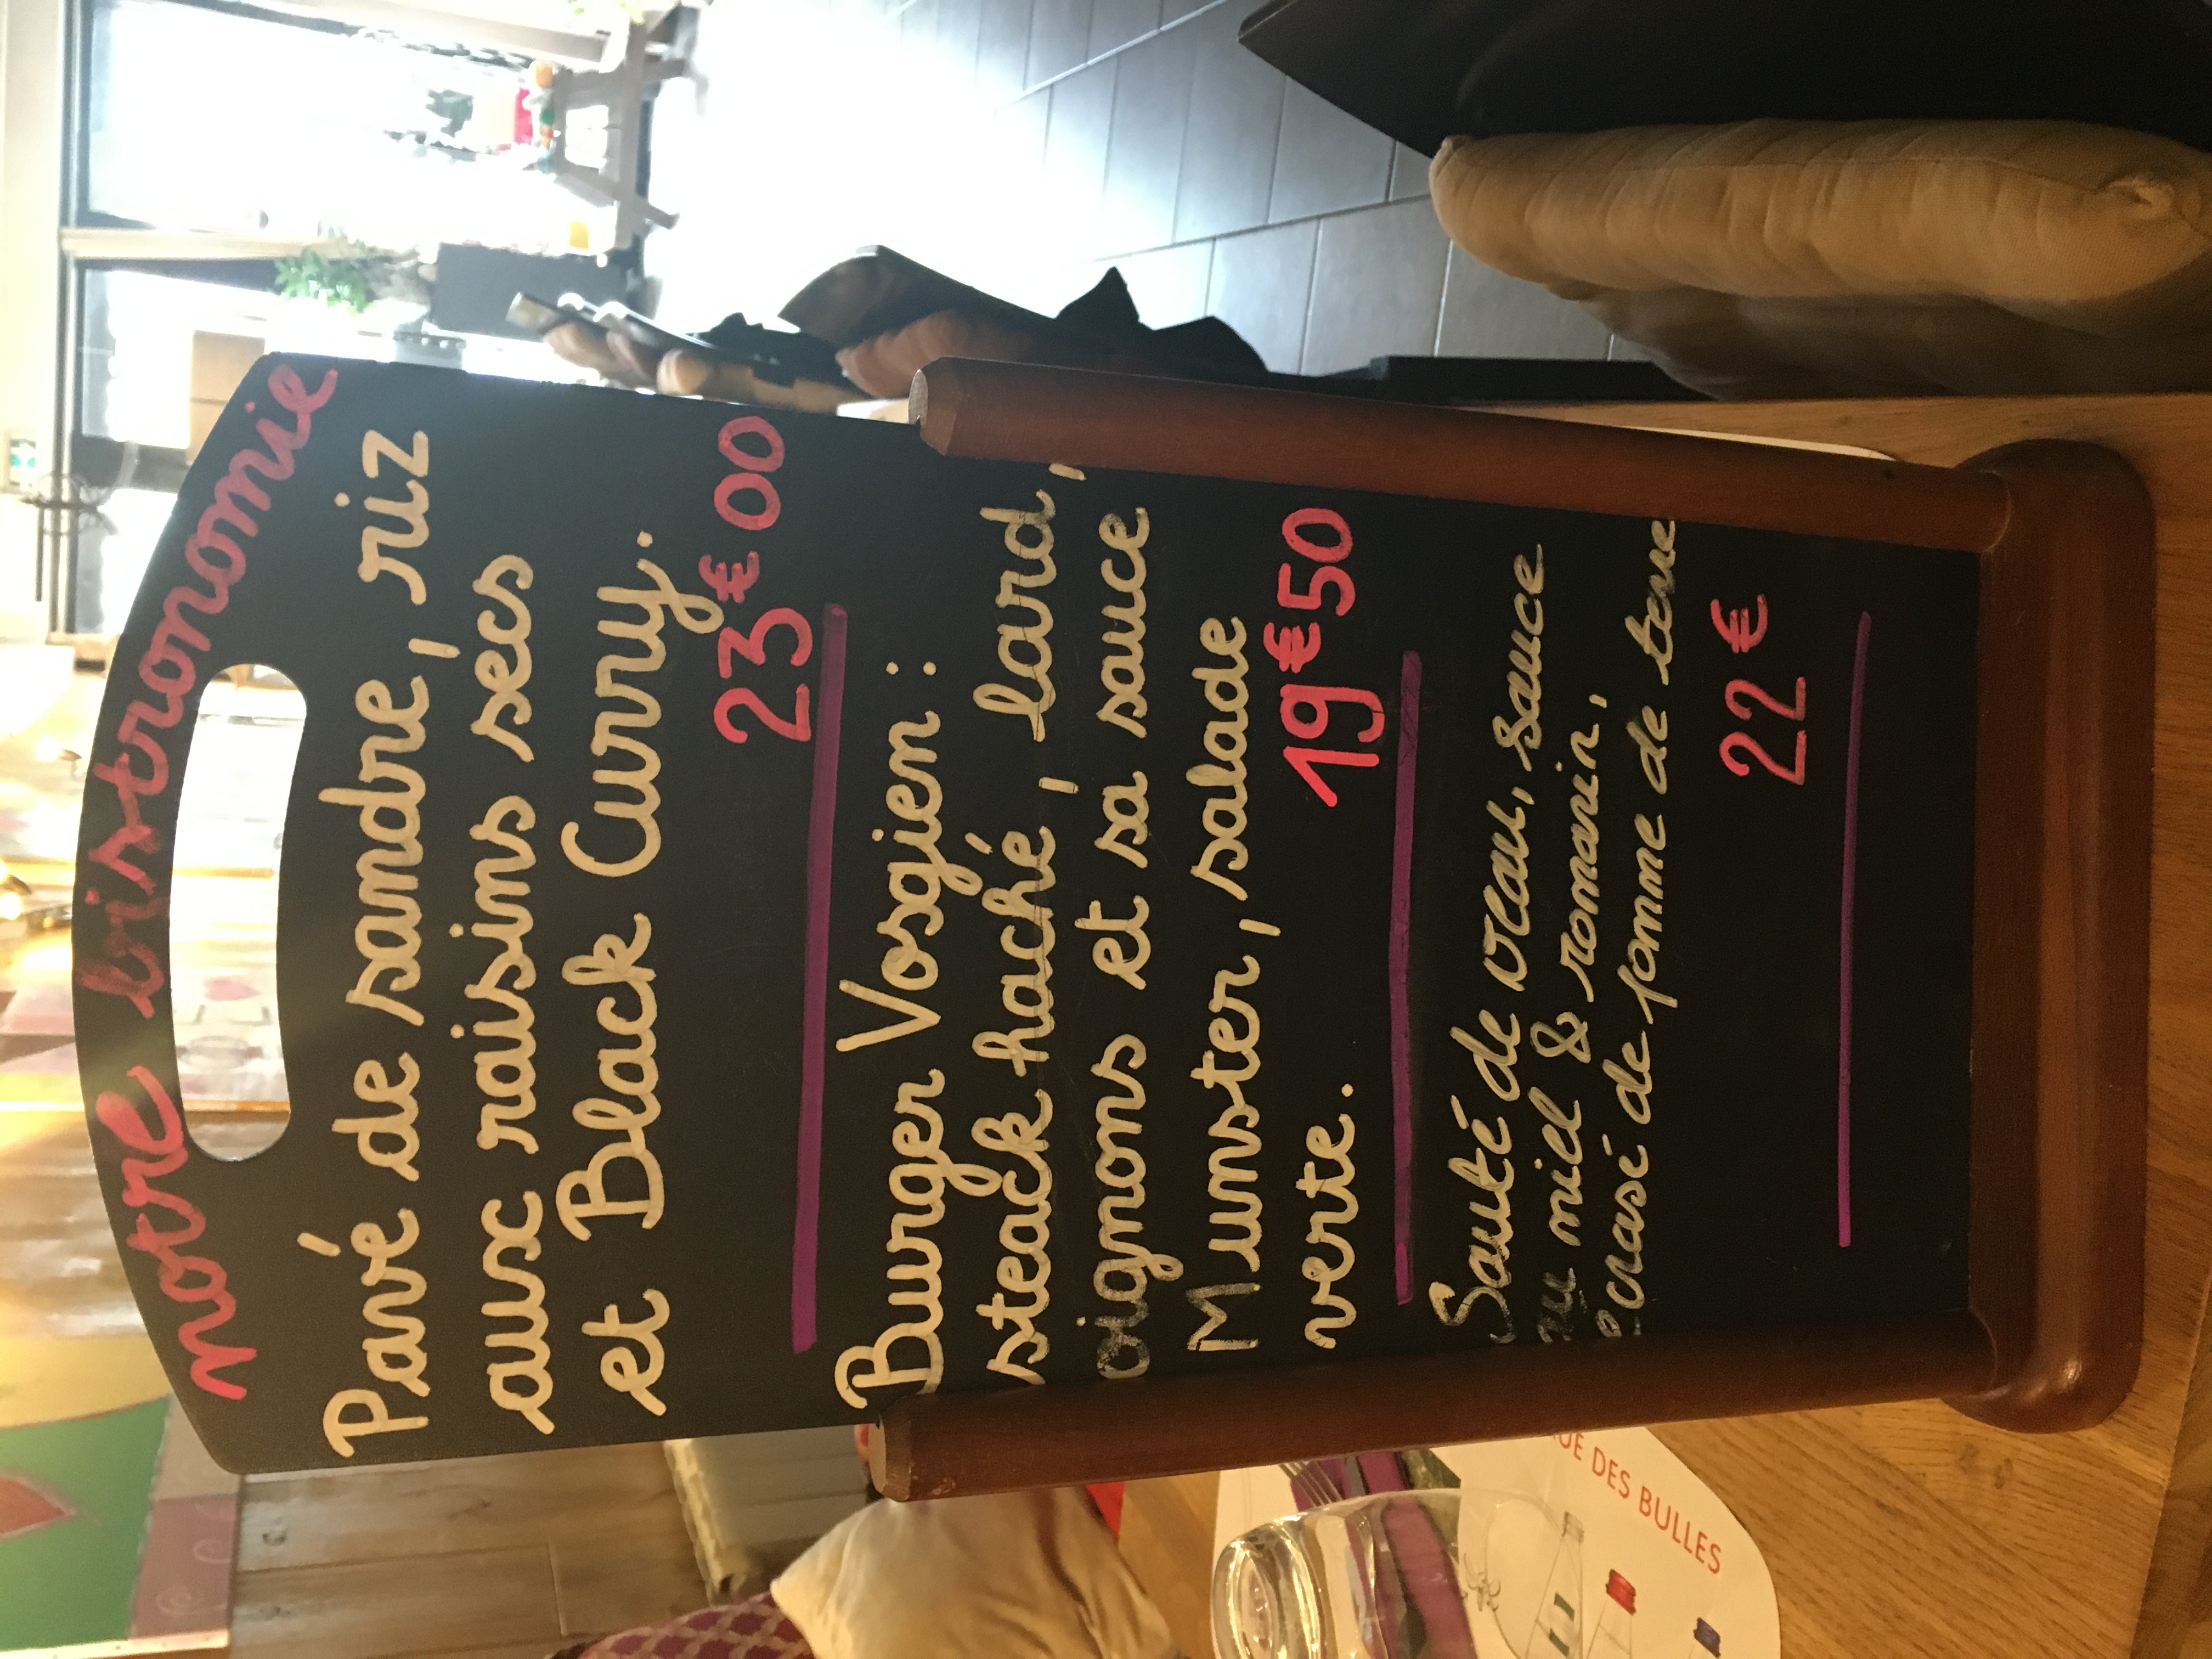 notre bistronomie
Pavé de sandre, riz
aux raisins secs
et Black Curry.
23€00
Burger Vosgien :
steack haché, lard,
oignons et sa sauce
Munster, salade
verte.
19€50
Sauté de veau, sauce
au miel & romarin,
écrasé de pomme de terre
22€
UE DES BULLES